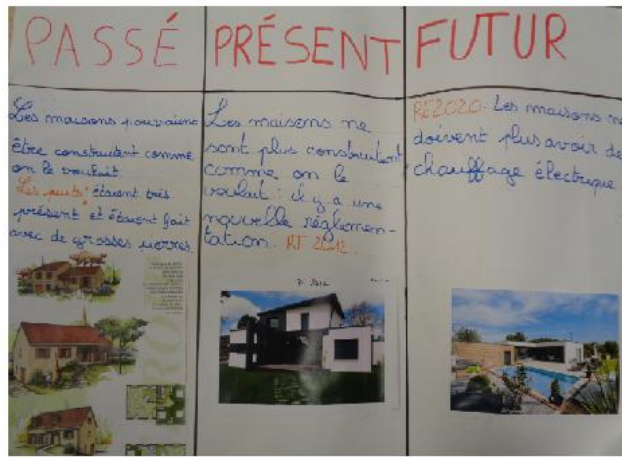 PASSÉ
Les maisons pouvaient
être construitent comme
on le voulait.
Les puits: étaient très
présent et étaient fait
avec de grosses pierres.
PRÉSENT
Les maisons ne
sont plus construitent
comme on le
voulait : il y a une
nouvelle réglemen-
tation. RT 2012.
RT 2012
FUTUR
RE2020: Les maisons ne
doivent plus avoir de
chauffage électrique